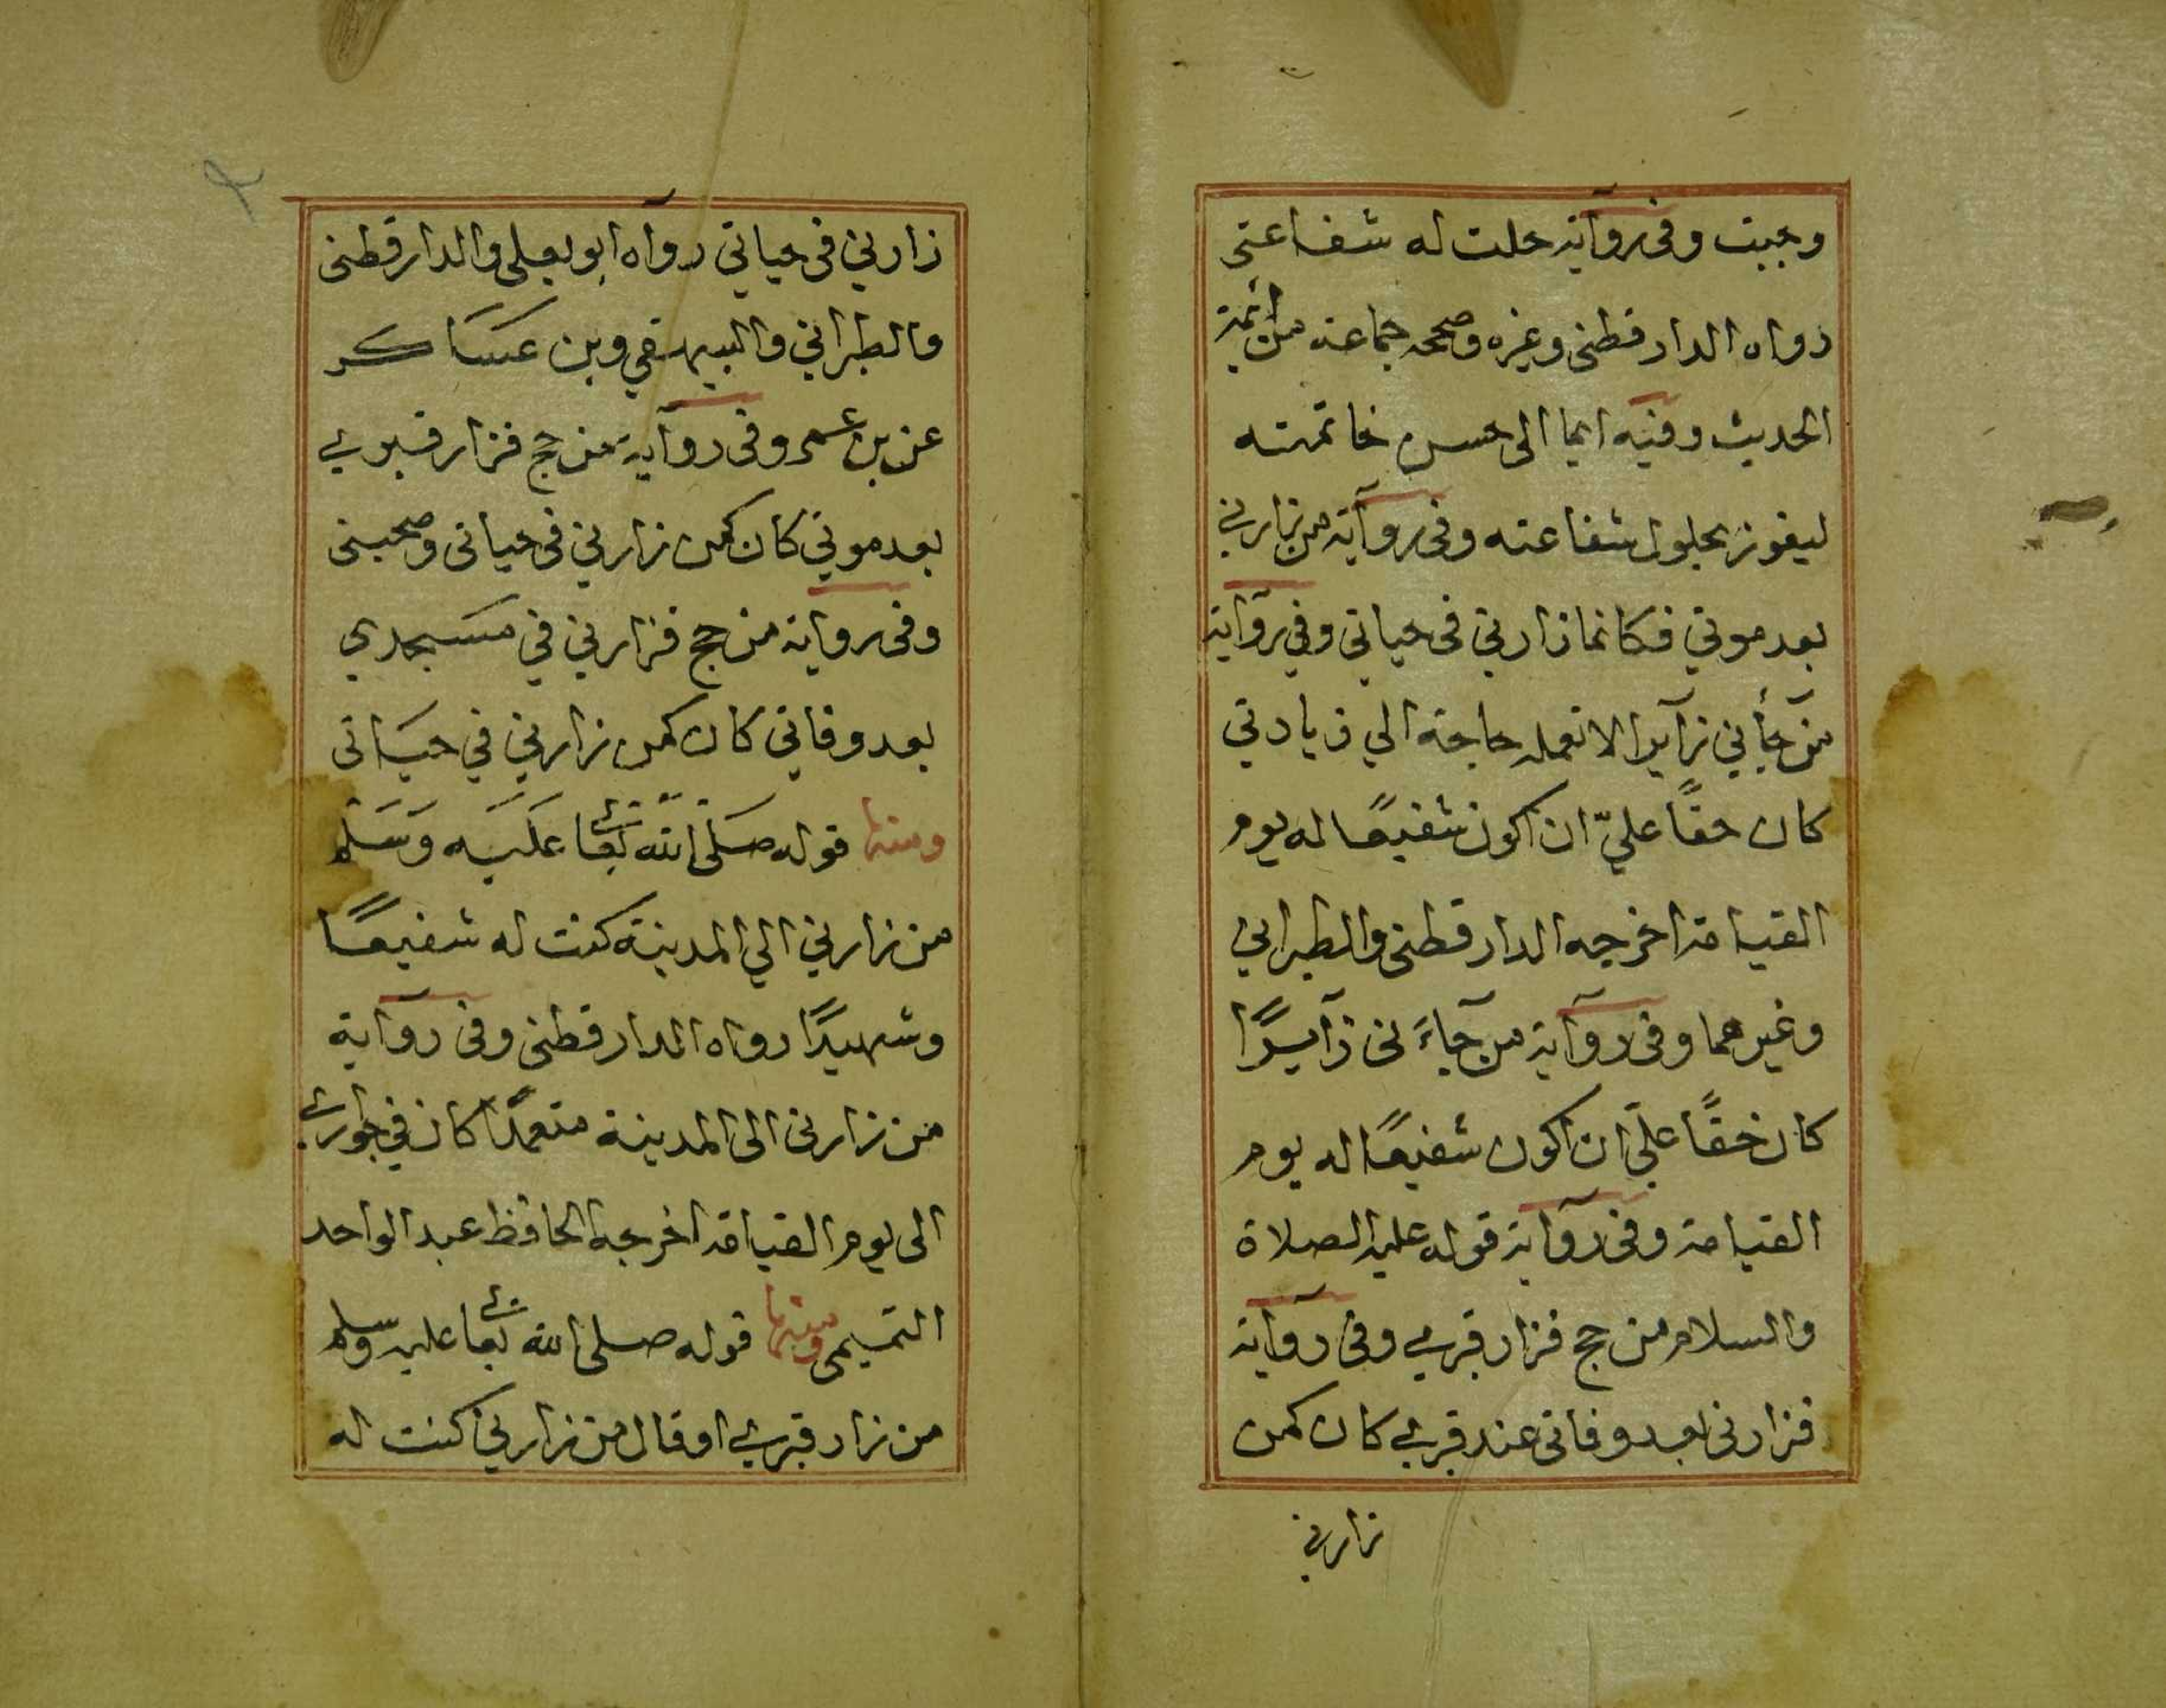 وجبت وفى رواية حلت له شفاعتى
رواه الدارقطنى وغيره وصححه جماعة من ائمة
الحديث وفيه ايما الى حسن خاتمته
ليفوز بحلول شفاعته وفى رواية من زارني
بعد موتي فكانما زارني فى حياتى وفي رواية
من جأني زآيرا لا تعمله حاجة الي زيارتي
كان حقًا عليّ ان اكون شفيعًا له يوم
القيامة اخرجه الدارقطنى والطبراني
وغيرهما وفى رواية من جآءَ نى زآيرًا
كان حقًا عليّ ان اكون شفيعًا له يوم
القيامة وفى رواية قوله عليه الصلاة
والسلام من حج فزار قبري وفى رواية
فزارنى بعد وفاتى عند قبري كان كمن
زارني
٢
زارني فى حياتي رواه ابو يعلى والدارقطنى
والطبراني والبيهقي وبن عساكر
عن بن عمر وفى رواية من حج فزار قبري
بعد موتي كان كمن زارني فى حياتى وصحبنى
وفى رواية من حج فزارني في مسجدي
بعد وفاتي كان كمن زارني في حياتى
ومنها قوله صلى الله تعا عليه وسلم
من زارني الي المدينة كنت له شفيعًا
وشهيدًا رواه الدارقطنى وفى رواية
من زارنى الى المدينة متعمدًا كان في جواري
الى يوم القيامة اخرجه الحافظ عبد الواحد
التميمى ومنها قوله صلى الله تعا عليه وسلم
من زار قبري او قال من زارني كنت له